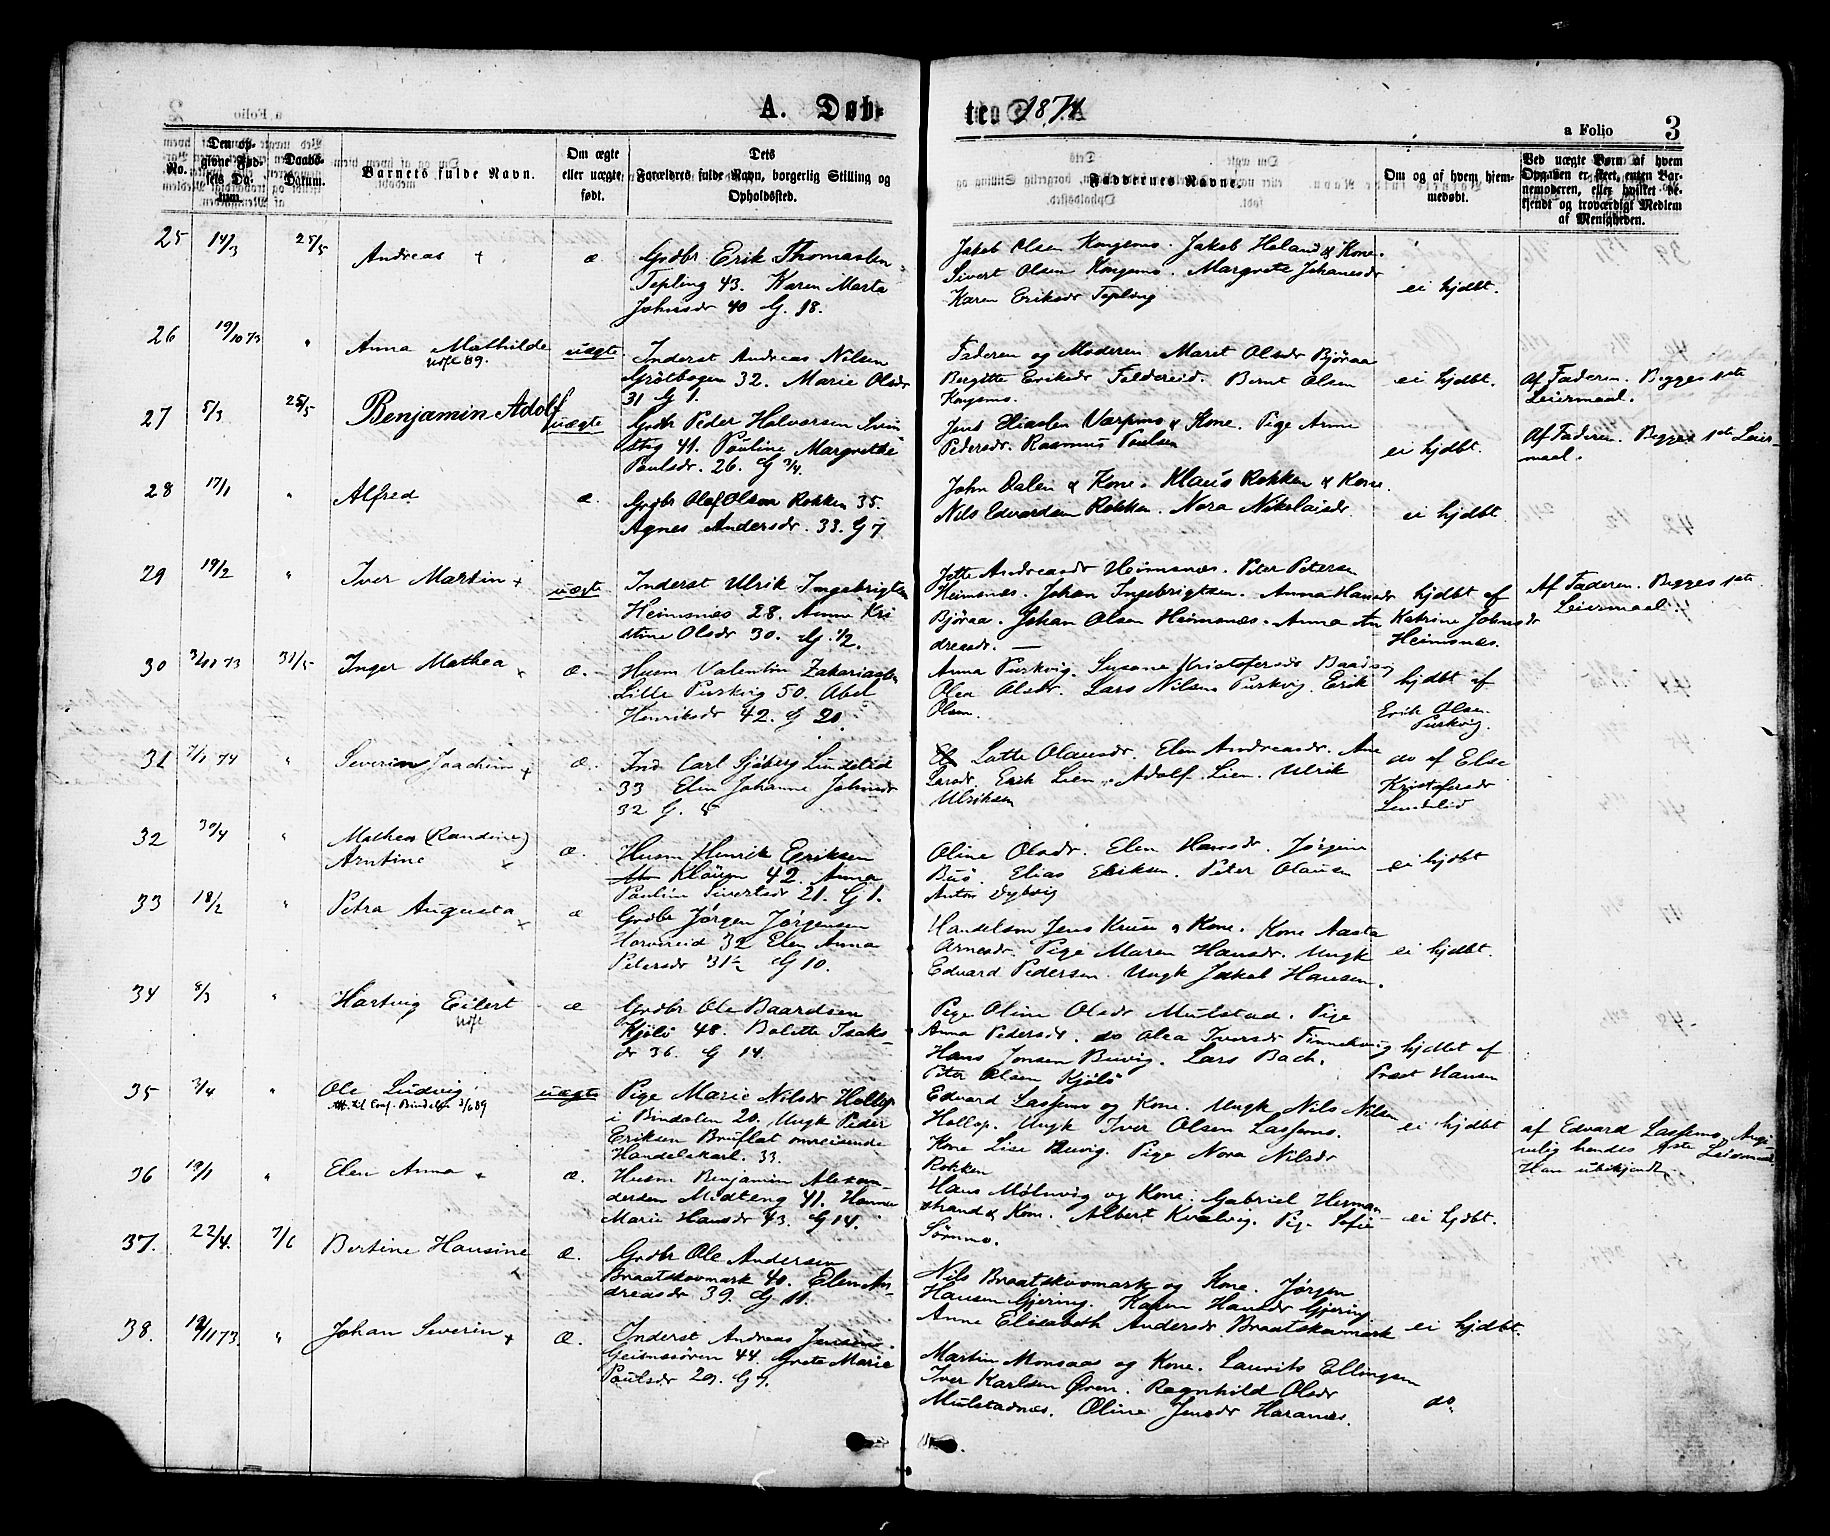 A. Døb-
ten 1874
a Folio 3
No.
Den op-
givne Fød-
sels Da-
tum.
Daabs-
Datum.
Barnets fulde Navn.
Om ægte
eller uægte
født.
Dets
Forældres fulde Navn, borgerlig Stilling og
Opholdssted.
Faddernes Navne.
Om og af hvem hjem-
medøbt.
Ved uægte Børn af hvem
Opgaven er skeet, enten Bar-
nemoderen, eller hvilket be-
kjendt og troværdigt Medlem
af Menigheden.
25 14/3 25/5 Andreas + æ
Grdbr Erik Thomassen
Tepling 43. Karen Marta
Johnsdr 40 G. 18.
Jakob Olsen Kongsmo. Jakob Haland & Kone.
Sivert Olsen Kongsmo. Margrete Johansdr
Karen Eriksdr Tepling
ei hjdbt.
26 19/10 73 " Anna Mathilde uægte
Inderst Andreas Nilsen
Grøtbogen 32. Marie Olsdr
31 G 1.
Faderen og Moderen. Maret Olsdr Bjøraa
Bergitte Eriksdr Foldereid. Bernt Olsen
Kongsmo.
ei hjdbt.
Af Faderen. Begges 1ste
Leiermaal.
27 5/3 25/5 Benjamin Adolf uægte
Grdbr Peder Halvorsen
41. Pauline Margrethe
Paulsdr. 26. G 3/4.
Jens Eliassen Varpmo & Kone. Pige Anne
Pedersdr. Rasmus Paulsen
ei hjdbt.
Af Faderen. Begges 1ste Leier-
maal.
28 17/1 " Alfred æ.
Grdbr Olaf Olsen Rokken 35.
Agnes Andersdr. 33. G 7.
John Dalen & Kone. Klaus Rokken & Kone.
Nils Edvardsen Rokken. Nora Nikolaisdr
ei hjdbt.
29 19/2 " Iver Martin + uægte
Inderst Ulrik Ingebrigtsen
Heimsnæs 28. Anne Kri
stine Olsdr 30. G. 1/2.
Jette Andreasdr Heimsnæs. Peter Petersen
Heimsnæs. Johan Ingebrigtsen. Anna Hansdr
Bjøraa. Johan Olsen Heimsnæs. Anna An
dreasdr. —
hjdbt af
Katrine Johnsdr
Heimsnæs.
Af Faderen. Begges 1ste
Leiermaal.
30 3/11 73 31/5 Inger Mathea + æ.
Husm Valentin Zakariassen
Lille Purkvig 50. Abel
Henriksdr 42. G 20.
Anna Purkvig. Susane Kristofersdr
Olea Olsdr. Lars Nilsen Purkvig. Erik
Olsen.
hjdbt af
Erik Olsen
Purkvig.
31 7/1 74 " Severin Joachim + æ.
Ind Carl Sjøberg Lundslid
33 Elen Johanne Johnsdr
32 G. 8
Lotte Olausdr. Elen Andreasdr. Ane
Larsdr. Erik Lien. Adolf Lien. Ulrik
Ulriksen
do af Else
Kristofersdr
Lundslid
32 30/4 " Mathea (Randine)
Arntine + æ.
Husm Henrik Eriksen
Kløugn 42. Anna
Paulin Sivertsdr 21. G 1.
Oline Olsdr. Elen Hansdr. Jørgine
Buø. Elias Eriksen. Peter Olausen
Anton Dybvig
ei hjdbt
33 18/2 " Petra Augusta + æ
Grdbr Jørgen Jørgensen
Horvereid 32 Elen Anna
Petersdr 31 1/2 G 10.
Handelsm Jens Kruse & Kone. Kone Aasta
Arnesdr. Pige Maren Hansdr. Ungk
Edvard Pedersen. Ungk Jakob Hansen.
ei hjdbt.
34 8/3 " Hartvig Eilert æ
Grdbr Ole Baardsen
Kjølø 48. Bolette Isaks-
dr 36. G 14.
Pige Oline Olsdr Mulstad. Pige
Anna Pedersdr. do Olea Iversdr Finnekvig
Hans Jonsen Buvig. Lars Bach.
Peter Olsen Kjølø
hjdbt af
Præst Hansen
35 3/4 " Ole Ludvig uægte
til Conf. Bindalen 3/6 89
Pige Marie Nilsdr Hollop
i Bindalen 20. Ungk Peder
Eriksen Bruflat omreisende
Handelskarl. 33.
Edvard Lassemo og Kone. Ungk Nils Nilsen
Hollop. Ungk Iver Olsen Lassemo.
Kone Lise Buvig. Pige Nora Nilsdr
Rokken
ei hjdbt
af Edvard Lassemo. Angi-
velig hendes 1ste Leiermaal
Han ubekjendt.
36 19/1 " Elen Anna + æ.
Husm Benjamin Alexan-
dersen Midteng 41. Hanna
Marie Hansdr 43. G 14.
Hans Mølnvig og Kone. Gabriel Herman
strand & Kone. Albert Kvalvig. Pige Sofie
Sørmo.
ei hjdbt.
37. 22/4. 7/6 Bertine Hansine + æ.
Grdbr Ole Andersen
Braatskovmark 40. Elen An-
dreasdr 39. G 11.
Nils Braatskovmark og Kone. Jørgen
Hansen Gjering. Karen Hansdr Gjering
Anne Elisabeth Andersdr Braatskovmark
ei hjdbt.
38. 12/11 73. " Johan Severin + æ.
Inderst Andreas Jensen
Geisnesøren 44. Grete Marie
Paulsdr 29. G 7.
Martin Monsaas og Kone. Laurits Ellingsen
Iver Karlsen Øren. Ragnhild Olsdr
Mulstadnæs. Oline Jensdr Haranæs.
do